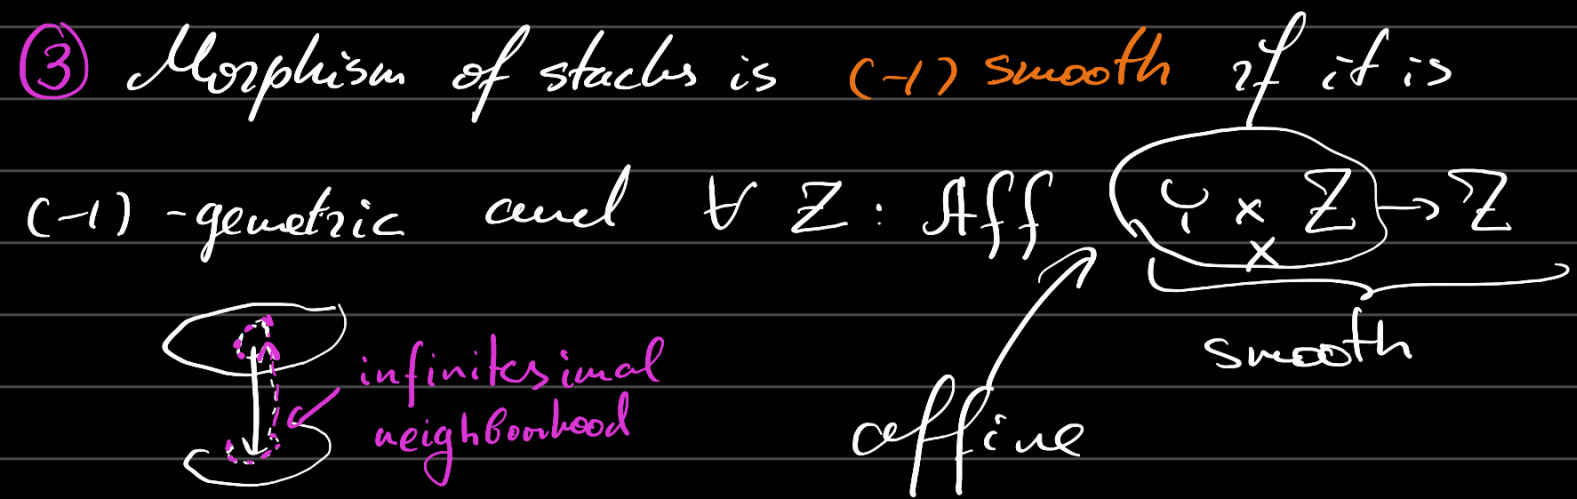 ③ Morphism of stacks is (-1) smooth if it is
(-1)-gemetric and ∀ Z : Aff Y ×_X Z → Z
smooth
infinitesimal
neighbourhood
affine